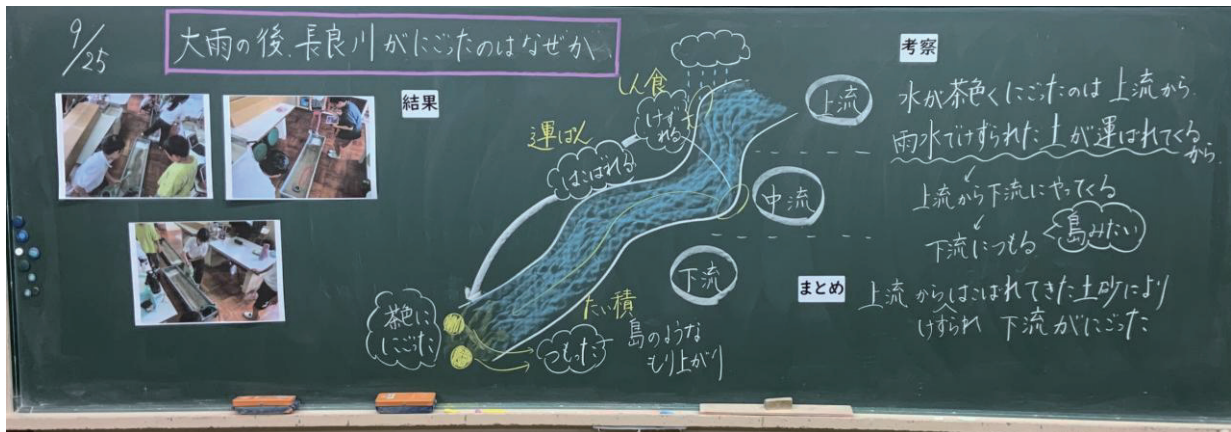 9/25
大雨の後、長良川がにごったのはなぜか
結果
しん食
けずれる
運ぱん
はこばれる
上流
中流
下流
茶色に
にごった
たい積
つもった
島のような
もり上がり
考察
水が茶色くにごったのは上流から
雨水でけずられた土が運ばれてくる
から
上流から下流にやってくる
下流につもる
島みたい
まとめ
上流からはこばれてきた土砂により
けずられ 下流がにごった